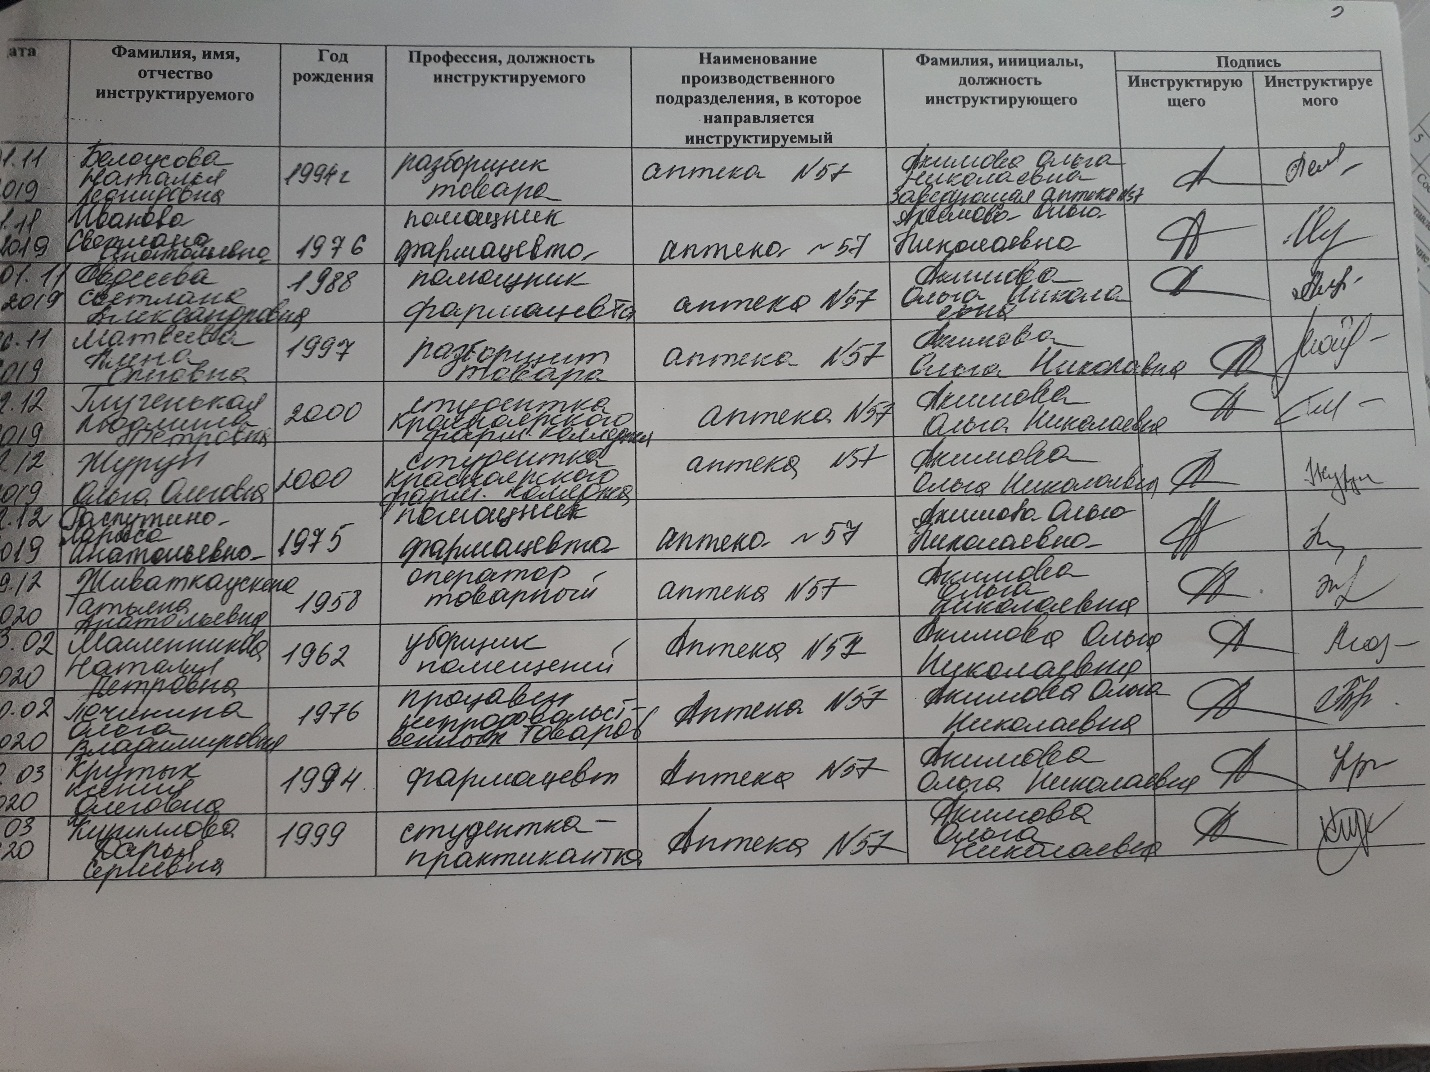 ата
Фамилия, имя,
отчество
инструктируемого
Год
рождения
Профессия, должность
инструктируемого
Наименование
производственного
подразделения, в которое
направляется
инструктируемый
Фамилия, инициалы,
должность
инструктирующего
Подпись
Инструктирую
щего
Инструктируе
мого
Белоусова
Наталья
1994г
разборщик
товара
аптека N57
Акимова Ольга
Николаевна
Заведующая аптекой N57
2019
Иванова
Светлана
Анатольевна
1976
помощник
фармацевта
аптека ~57
Акимова Ольга
Николаевна
01.11
2019
Светлана
Александровна
1988
помощник
фармацевта
аптека N57
Акимова
Ольга Никола
евна
019
Матвеева
1997
разборщик
товара
аптека N57
Акимова
Ольга Николаевна
.12
019
Людмила
Петровна
2000
студентка
Красноярского
фарм. колледжа
аптека N57
Акимова
Ольга Николаевна
.12
019
Журун
Ольга Олеговна
2000
студентка
Красноярского
фарм. колледжа
аптека N57
Акимова
Ольга Николаевна
.12
019
Распутина
Лариса
Анатольевна
1975
помощник
фармацевта
аптека ~57
Акимова Ольга
Николаевна
020
Татьяна
Анатольевна
1958
оператор
товарный
аптека N57
Акимова
Ольга
Николаевна
.02
020
Масленникова
Наталия
Петровна
1962
уборщик
помещений
Аптека N57
Акимова Ольга
Николаевна
.02
020
Ольга
Владимировна
1976
продавец
непродовольст-
венных товаров
Аптека N57
Акимова Ольга
Николаевна
.03
020
Крутых
Ксения
Олеговна
1994
фармацевт
Аптека N57
Акимова
Ольга Николаевна
03
20
Кириллова
Дарья
Сергеевна
1999
студентка-
практикантка
Аптека N57
Акимова
Ольга
Николаевна